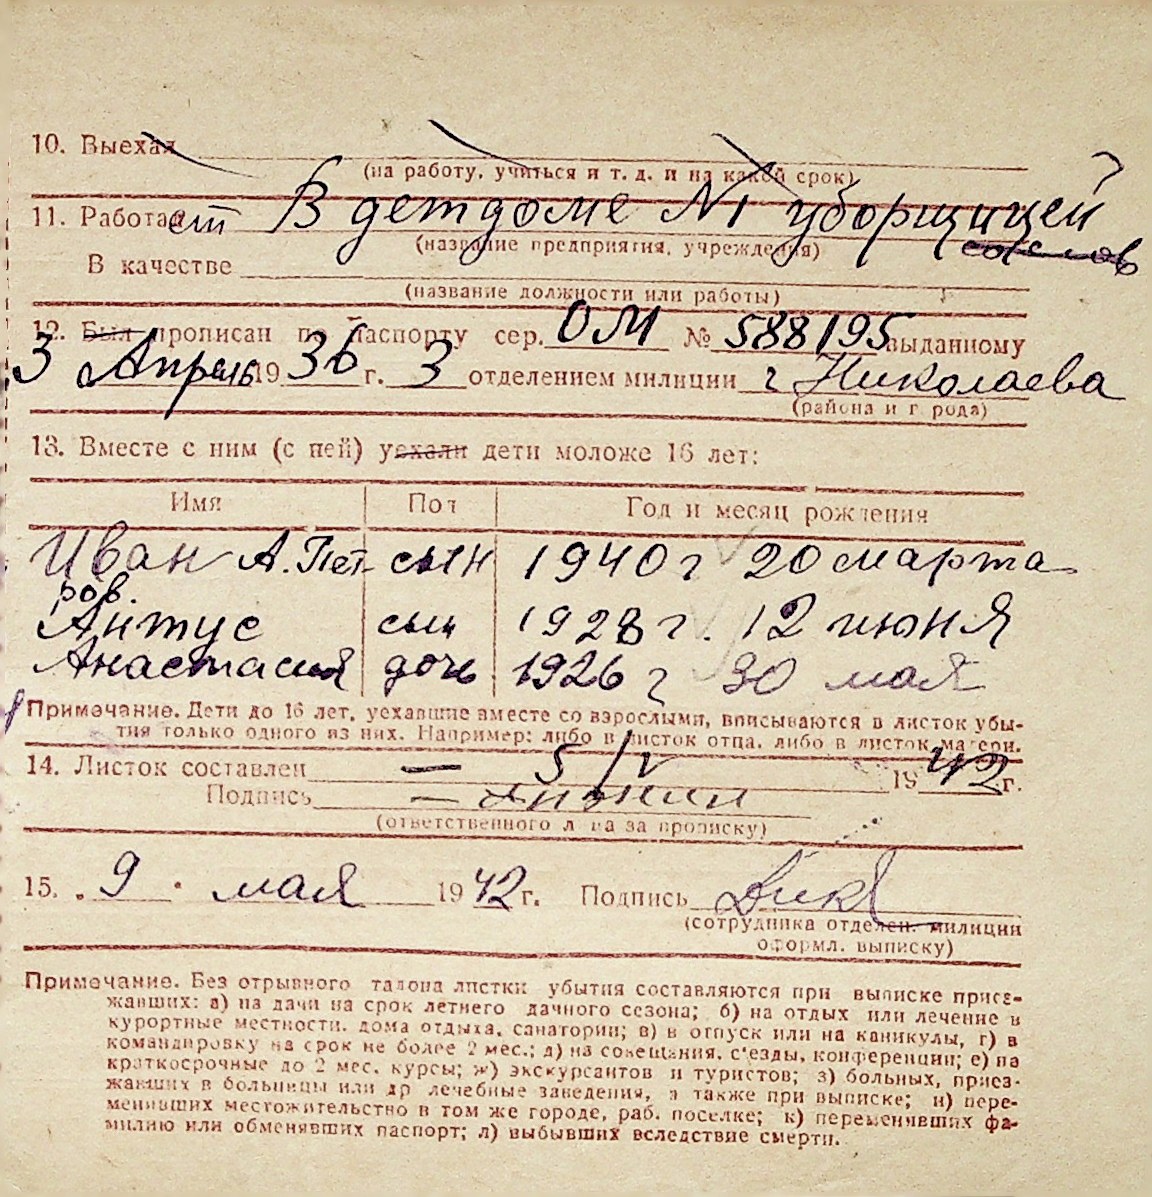 10. Выехал
(на работу, учиться и т. д. и на какой срок)
11. Работает В детдоме №1 уборщицей
(название предприятия, учреждения)
В качестве
(название должности или работы)
12. Был прописан по паспорту сер. ОМ № 588195 выданному
3 Апрель 1936 г. 3 отделением милиции г Николаева
(района и г рода)
13. Вместе с ним (с ней) уехали дети моложе 16 лет:
Имя Пол Год и месяц рождения
Иван А. Пет сын 1940 г 20 марта
ров
Антус сын 1928 г. 12 июня
Анастасия дочь 1926 г 30 мая
Примечание. Дети до 16 лет, уехавшие вместе со взрослыми, вписываются в листок убы-
тия только одного из них. Например: либо в листок отца, либо в листок матери.
14. Листок составлен — 5/V 1942 г.
Подпись
(ответственного л ца за прописку)
15. „ 9 " мая 1942 г. Подпись
(сотрудника отделен. милиции
оформл. выписку)
Примечание. Без отрывного талона листки убытия составляются при выписке приез-
жавших: а) на дачи на срок летнего дачного сезона; б) на отдых или лечение в
курортные местности, дома отдыха, санатории; в) в отпуск или на каникулы, г) в
командировку на срок не более 2 мес.; д) на совещания, с'езды, конференции; е) на
краткосрочные до 2 мес. курсы; ж) экскурсантов и туристов; з) больных, приез-
жавших в больницы или др лечебные заведения, а также при выписке; и) пере-
менивших местожительство в том же городе, раб. поселке; к) переменивших фа-
милию или обменявших паспорт; л) выбывших вследствие смерти.